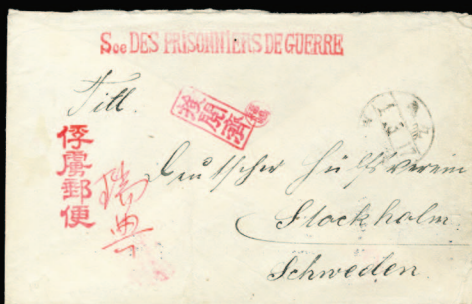 Sce DES PRISONNIERS DE GUERRE
Titl.
俘虜郵便
瑞典
Deutscher Hülfsverein
Stockholm.
Schweden.